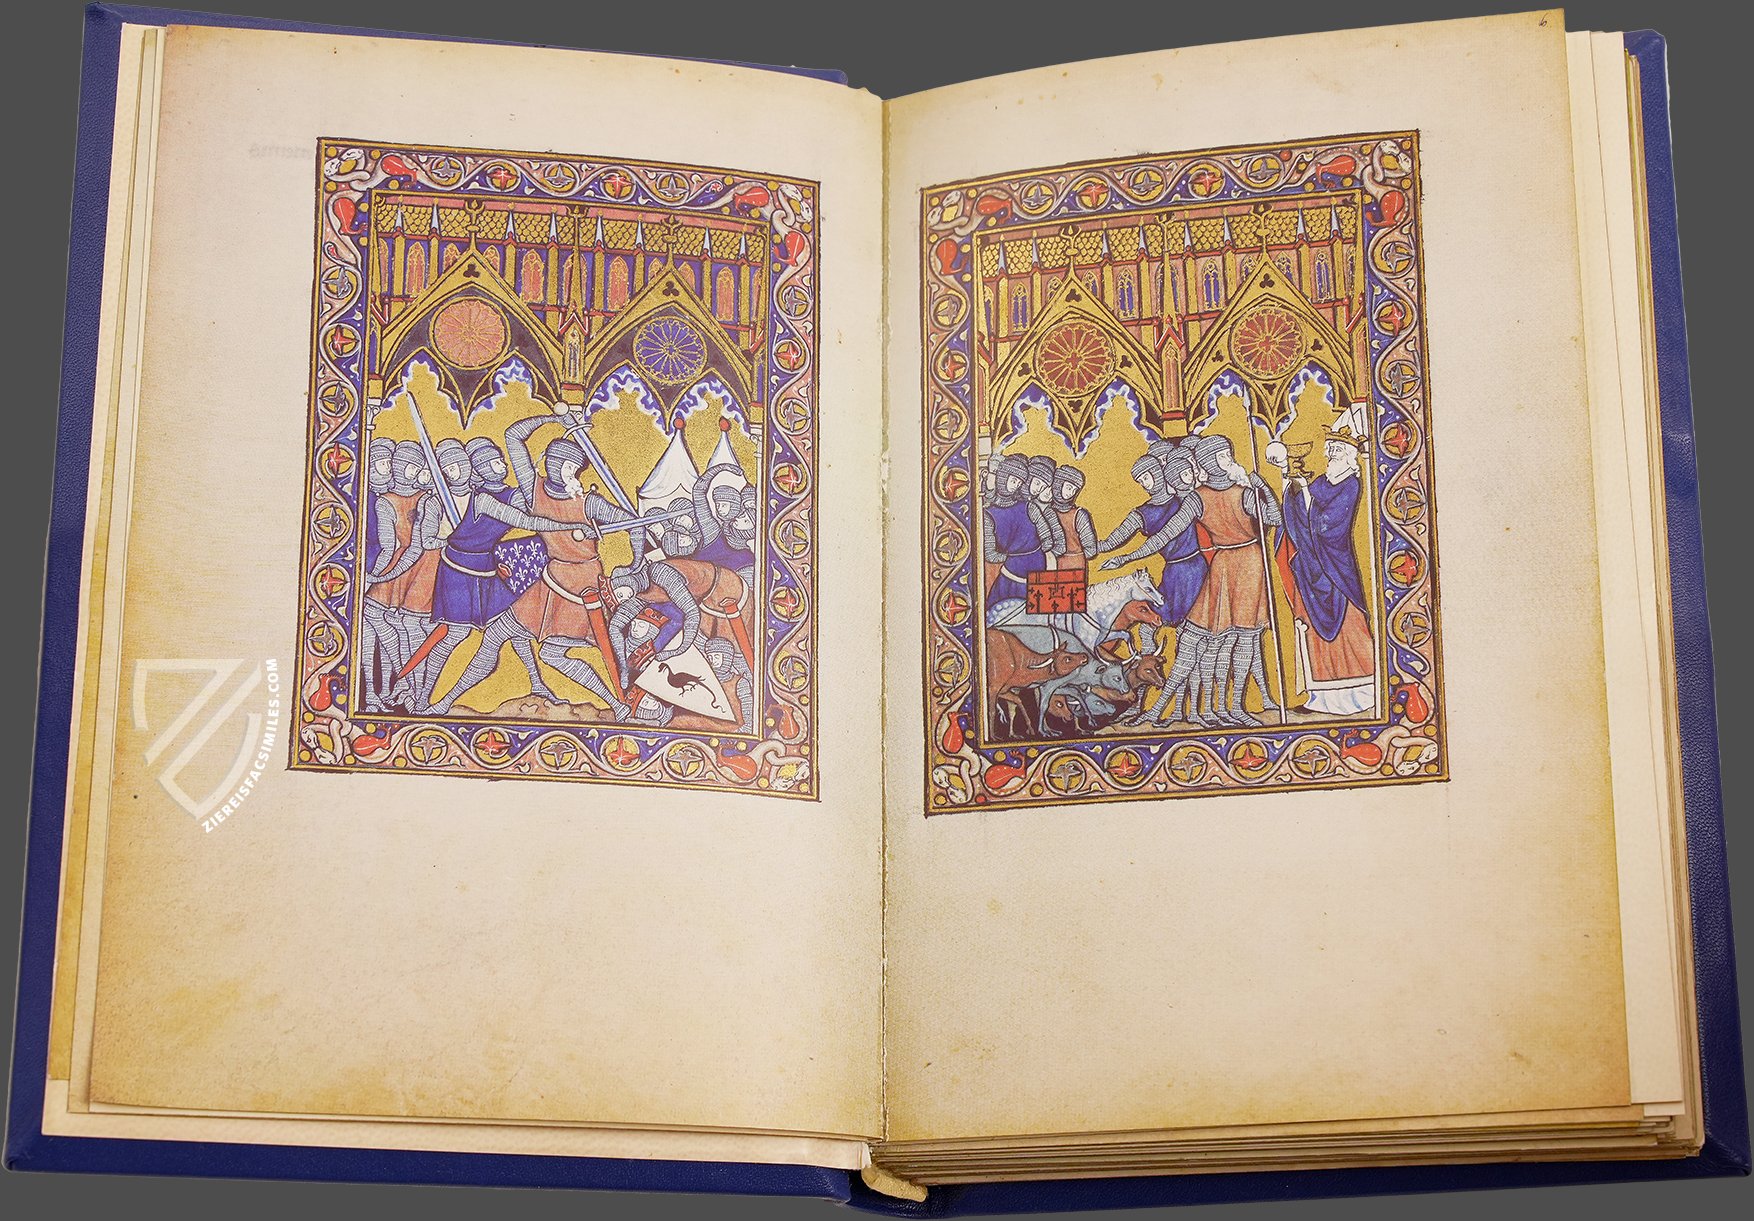 6
ZIEREISFACSIMILES.COM